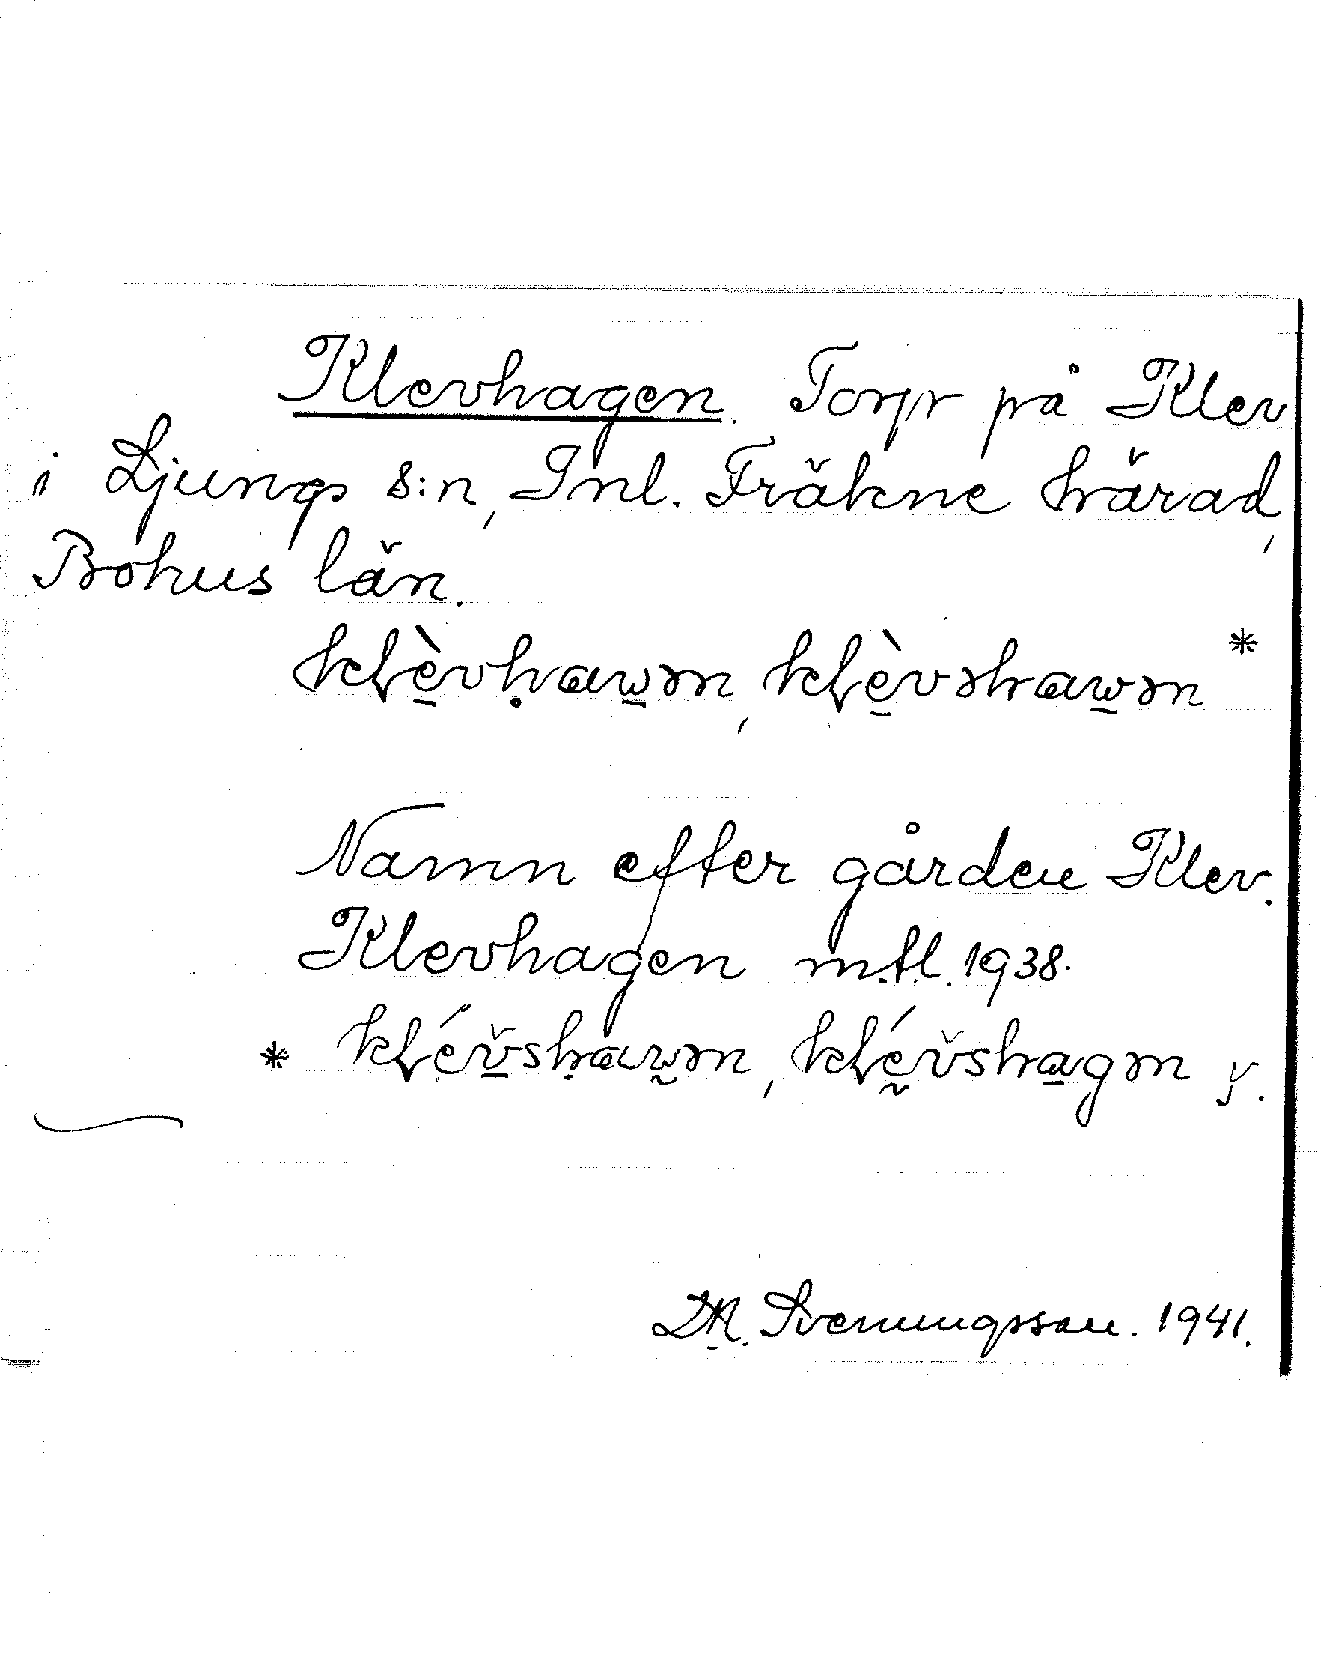 Klevhagen. Torp på Klev
i Ljungs s:n, Inl. Fräkne härad,
Bohus län.
klèvhawən, klèvəhawən *
Namn efter gården Klev.
Klevhagen mtl. 1938.
* klévshawən, klévshagən y.
D.A. Svenningsson. 1941.